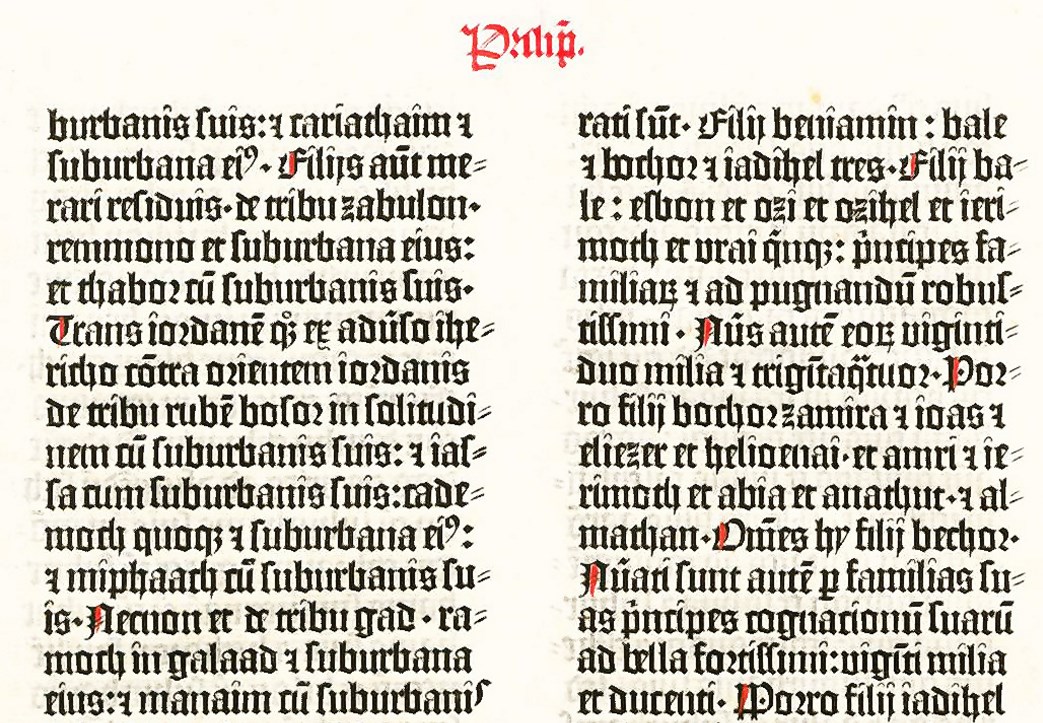 Pͣlip̄.
burbanis suis:⁊ cariathaim ⁊
suburbana ei⁹. Filijs aūt me⸗
rari residuis. de tribu zabulon.
remmono et suburbana eius:
et thabor cū suburbanis suis.
Trans iordanē q̊ꝫ ex adūso ihe⸗
richo cōtra orientem iordanis
de tribu rubē bosor in solitudi⸗
nem cū suburbanis suis: ⁊ ias⸗
sa cum suburbanis suis:cade⸗
moth quoqꝫ ⁊ suburbana ei⁹:
⁊ miphaath cū suburbanis su⸗
is. Necnon et de tribu gad . ra⸗
moth in galaad ⁊ suburbana
eius:⁊ manaim cū suburbanis
rati sūt. Filij beniamin : bale
⁊ bochor ⁊ iadihel tres. Filij ba⸗
le : esbon et ozi et ozihel et ieri⸗
moth et vrai q̄nqꝫ: p̍ncipes fa⸗
miliaꝝ ⁊ ad pugnandū robus⸗
tissimi . Nūs autē eoꝝ viginti⸗
duo milia ⁊ trigītaq̄tuor. Por⸗
ro filij bochor zamira ⁊ ioas ⁊
eliezer et helioenai. et amri ⁊ ie⸗
rimoth et abia et anathut. ⁊ al⸗
mathan. Om̄es hy filij bechor.
Nūati sunt autē ꝑ familias su⸗
as p̍ncipes cognacionū suarū
ad bella fortissimi:vigīti milia
et ducenti. Porro filij iadihel